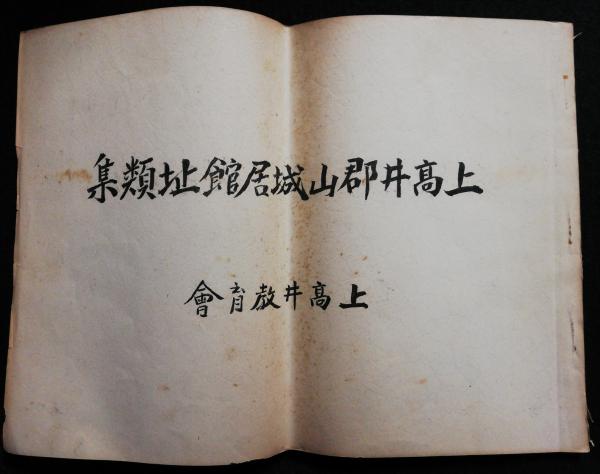 上高井郡山城居館址類集
上高井教育會